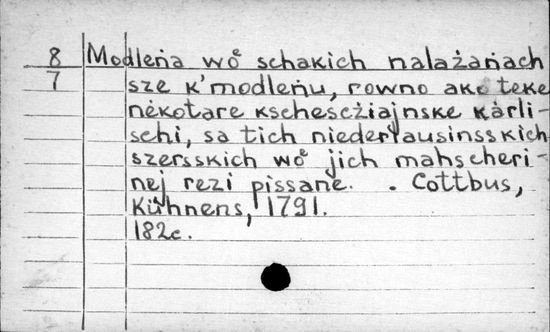 8 Modleńa wȯ schakich nalažańach
7 sze k'modleńu, rowno ako teke
někotare kschescžiajnske kàrli-
schi, sa tich niederlausinsskich
szersskich wȯ jich mahscheri-
nej rezi pissane. . Cottbus,
Kühnens, 1791.
182c.